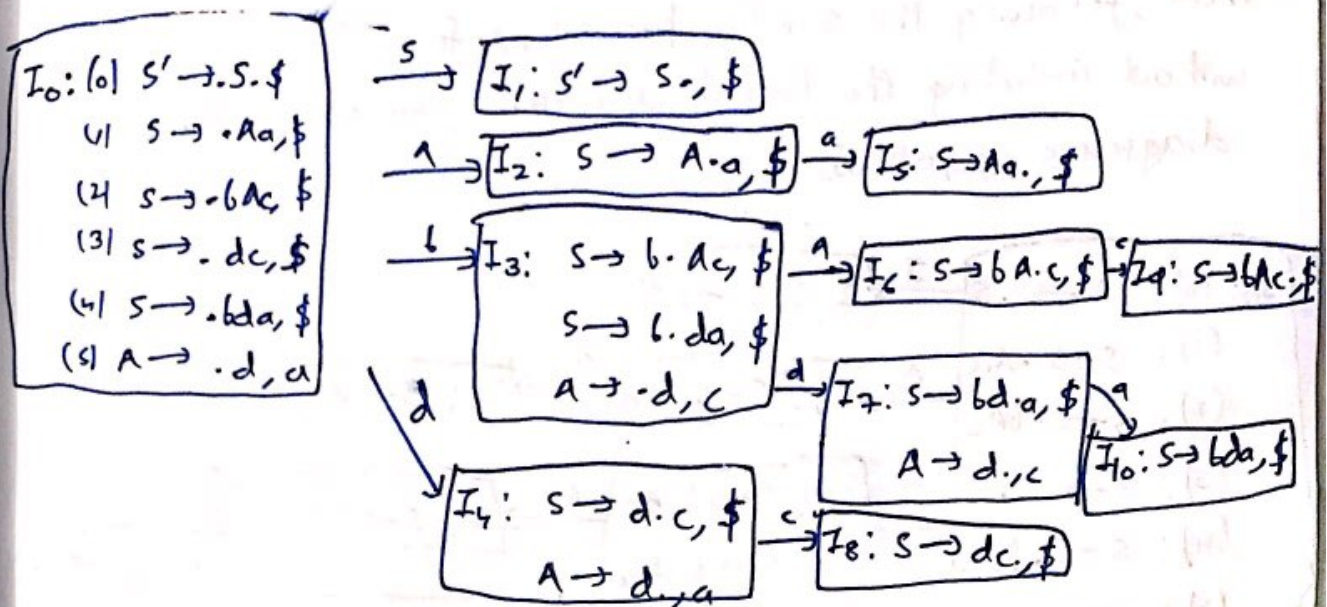 I₀: (0) S' → .S.$
(1) S → .Aa,$
(2) S → .bAc, $
(3) S → . dc, $
(4) S → .bda, $
(5) A → .d, a
S
I₁: S' → S., $
A
I₂: S → A.a, $
a
I₅: S→Aa., $
b
I₃: S → b. Ac, $
S → b. da, $
A → .d, c
A
I₆: S→bA.c, $
c
I₉: S→bAc.,$
d
I₇: S→bd.a, $
A → d.,c
a
I₁₀: S→bda,$
d
I₄: S → d.c, $
A → d.,a
c
I₈: S→dc.,$